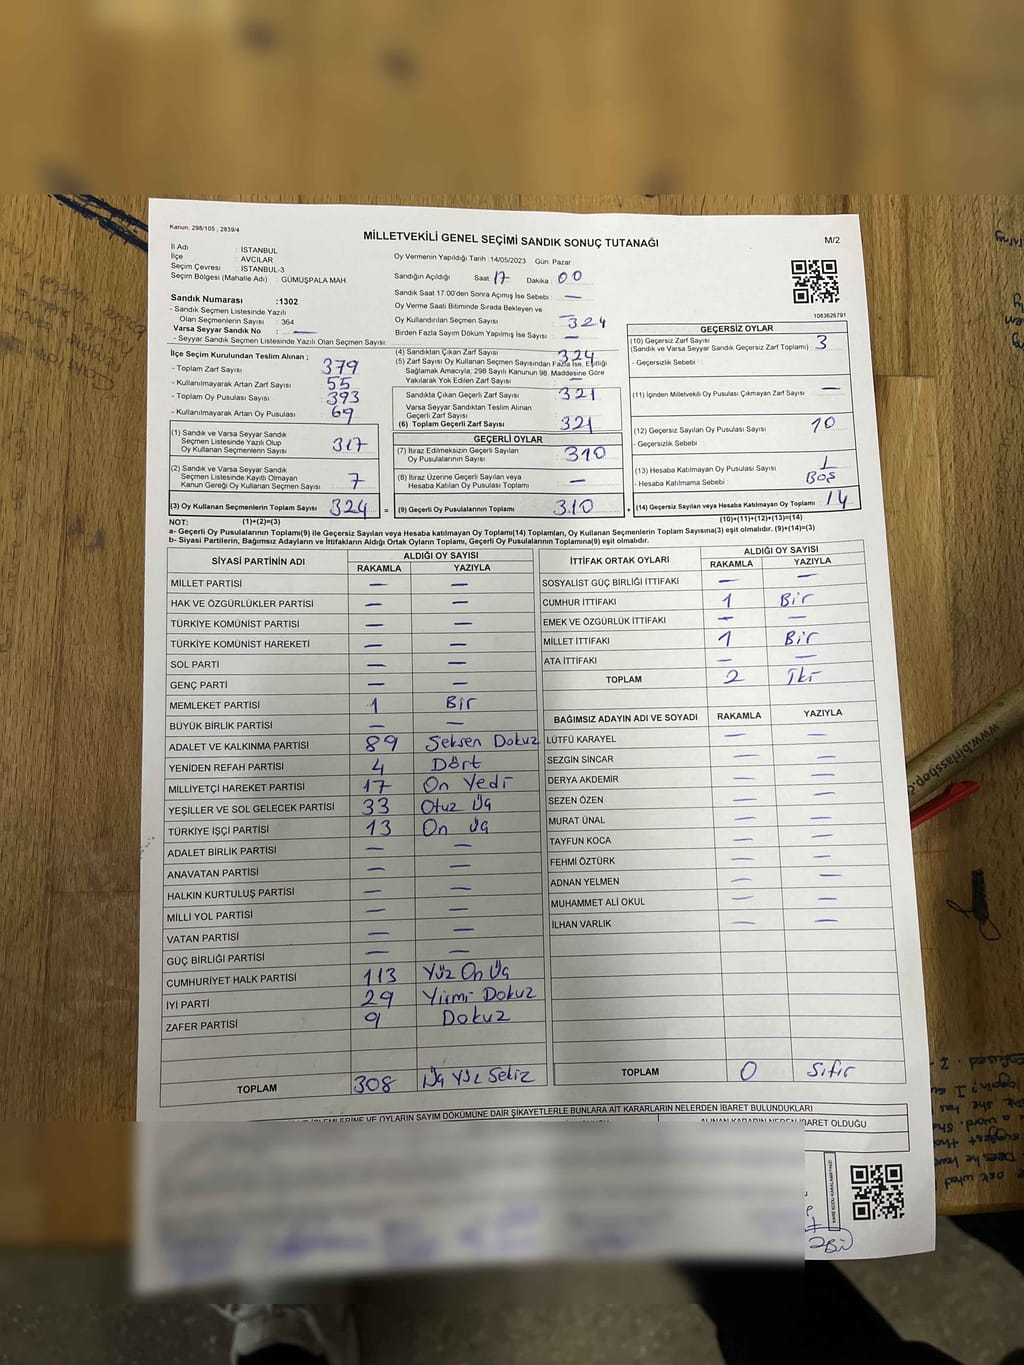 Kanun, 298/105 , 2839/4
MİLLETVEKİLİ GENEL SEÇİMİ SANDIK SONUÇ TUTANAĞI
M/2
İl Adı : İSTANBUL
İlçe : AVCILAR
Seçim Çevresi : İSTANBUL-3
Seçim Bölgesi (Mahalle Adı) : GÜMÜŞPALA MAH
Sandık Numarası :1302
- Sandık Seçmen Listesinde Yazılı
Olan Seçmenlerin Sayısı : 364
Varsa Seyyar Sandık No —
- Seyyar Sandık Seçmen Listesinde Yazılı Olan Seçmen Sayısı :
Oy Vermenin Yapıldığı Tarih : 14/05/2023 Gün: Pazar
Sandığın Açıldığı Saat: 17 Dakika : 00
Sandık Saat 17.00'den Sonra Açımış İse Sebebi : —
Oy Verme Saati Bitiminde Sırada Bekleyen ve
Oy Kullandırılan Seçmen Sayısı : 324
Birden Fazla Sayım Döküm Yapılmış İse Sayısı —
1083626791
İlçe Seçim Kurulundan Teslim Alınan ;
- Toplam Zarf Sayısı 379
- Kullanılmayarak Artan Zarf Sayısı 55
- Toplam Oy Pusulası Sayısı 393
- Kullanılmayarak Artan Oy Pusulası 69
(1) Sandık ve Varsa Seyyar Sandık
Seçmen Listesinde Yazılı Olup
Oy Kullanan Seçmenlerin Sayısı 317
(2) Sandık ve Varsa Seyyar Sandık
Seçmen Listesinde Kayıtlı Olmayan
Kanun Gereği Oy Kullanan Seçmen Sayısı 7
(3) Oy Kullanan Seçmenlerin Toplam Sayısı 324 =
(4) Sandıktan Çıkan Zarf Sayısı 324
(5) Zarf Sayısı Oy Kullanan Seçmen Sayısından Fazla İse, Eşitliği
Sağlamak Amacıyla, 298 Sayılı Kanunun 98. Maddesine Göre
Yakılarak Yok Edilen Zarf Sayısı —
Sandıkta Çıkan Geçerli Zarf Sayısı 321
Varsa Seyyar Sandıktan Teslim Alınan
Geçerli Zarf Sayısı
(6) Toplam Geçerli Zarf Sayısı 321
GEÇERLİ OYLAR
(7) İtiraz Edilmeksizin Geçerli Sayılan
Oy Pusulalarının Sayısı 310
(8) İtiraz Üzerine Geçerli Sayılan veya
Hesaba Katılan Oy Pusulası Toplamı —
(9) Geçerli Oy Pusulalarının Toplamı 310 +
GEÇERSİZ OYLAR
(10) Geçersiz Zarf Sayısı
(Sandık ve Varsa Seyyar Sandık Geçersiz Zarf Toplamı) 3
- Geçersizlik Sebebi :
(11) İçinden Milletvekili Oy Pusulası Çıkmayan Zarf Sayısı —
(12) Geçersiz Sayılan Oy Pusulası Sayısı 10
- Geçersizlik Sebebi :
(13) Hesaba Katılmayan Oy Pusulası Sayısı 1
- Hesaba Katılmama Sebebi : BOŞ
(14) Geçersiz Sayılan veya Hesaba Katılmayan Oy Toplamı 14
NOT: (1)+(2)=(3) (10)+(11)+(12)+(13)=(14)
a- Geçerli Oy Pusulalarının Toplamı(9) ile Geçersiz Sayılan veya Hesaba katılmayan Oy Toplamı(14) Toplamları, Oy Kullanan Seçmenlerin Toplam Sayısına(3) eşit olmalıdır. (9)+(14)=(3)
b- Siyasi Partilerin, Bağımsız Adayların ve İttifakların Aldığı Ortak Oyların Toplamı, Geçerli Oy Pusulalarının Toplamına(9) eşit olmalıdır.
SİYASİ PARTİNİN ADI ALDIĞI OY SAYISI
RAKAMLA YAZIYLA
MİLLET PARTİSİ — —
HAK VE ÖZGÜRLÜKLER PARTİSİ — —
TÜRKİYE KOMÜNİST PARTİSİ — —
TÜRKİYE KOMÜNİST HAREKETİ — —
SOL PARTİ — —
GENÇ PARTİ — —
MEMLEKET PARTİSİ 1 Bir
BÜYÜK BİRLİK PARTİSİ — —
ADALET VE KALKINMA PARTİSİ 89 Seksen Dokuz
YENİDEN REFAH PARTİSİ 4 Dört
MİLLİYETÇİ HAREKET PARTİSİ 17 On Yedi
YEŞİLLER VE SOL GELECEK PARTİSİ 33 Otuz Üç
TÜRKİYE İŞÇİ PARTİSİ 13 On Üç
ADALET BİRLİK PARTİSİ — —
ANAVATAN PARTİSİ — —
HALKIN KURTULUŞ PARTİSİ — —
MİLLİ YOL PARTİSİ — —
VATAN PARTİSİ — —
GÜÇ BİRLİĞİ PARTİSİ — —
CUMHURİYET HALK PARTİSİ 113 Yüz On Üç
İYİ PARTİ 29 Yirmi Dokuz
ZAFER PARTİSİ 9 Dokuz
TOPLAM 308 Üç Yüz Sekiz
İTTİFAK ORTAK OYLARI ALDIĞI OY SAYISI
RAKAMLA YAZIYLA
SOSYALİST GÜÇ BİRLİĞİ İTTİFAKI — —
CUMHUR İTTİFAKI 1 Bir
EMEK VE ÖZGÜRLÜK İTTİFAKI — —
MİLLET İTTİFAKI 1 Bir
ATA İTTİFAKI — —
TOPLAM 2 İki
BAĞIMSIZ ADAYIN ADI VE SOYADI RAKAMLA YAZIYLA
LÜTFÜ KARAYEL — —
SEZGİN SİNCAR — —
DERYA AKDEMİR — —
SEZEN ÖZEN — —
MURAT ÜNAL — —
TAYFUN KOCA — —
FEHMİ ÖZTÜRK — —
ADNAN YELMEN — —
MUHAMMET ALİ OKUL — —
İLHAN VARLIK — —
TOPLAM 0 Sıfır
İŞLEMLERİNE VE OYLARIN SAYIM DÖKÜMÜNE DAİR ŞİKAYETLERLE BUNLARA AİT KARARLARIN NELERDEN İBARET BULUNDUKLARI
ALINAN KARARIN NEDEN İBARET OLDUĞU
www.birlasshop.c